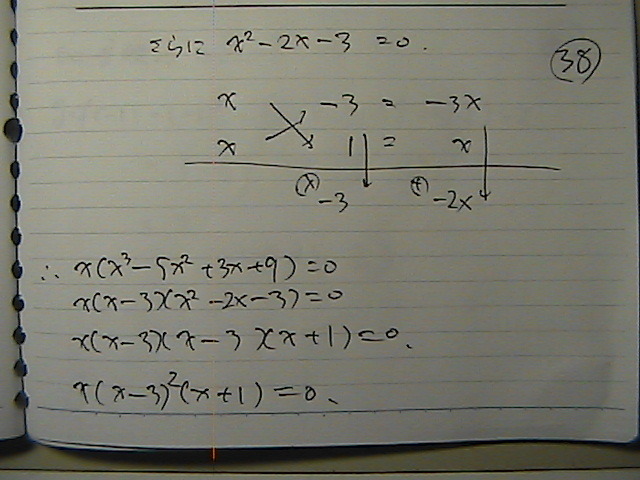 さらに x² - 2x - 3 = 0.
㊳
x -3 = -3x
x 1 = x
(x) -3 (+) -2x
∴ x(x³ - 5x² + 3x + 9) = 0
x(x-3)(x² - 2x - 3) = 0
x(x-3)(x-3)(x+1) = 0.
x(x-3)²(x+1) = 0.